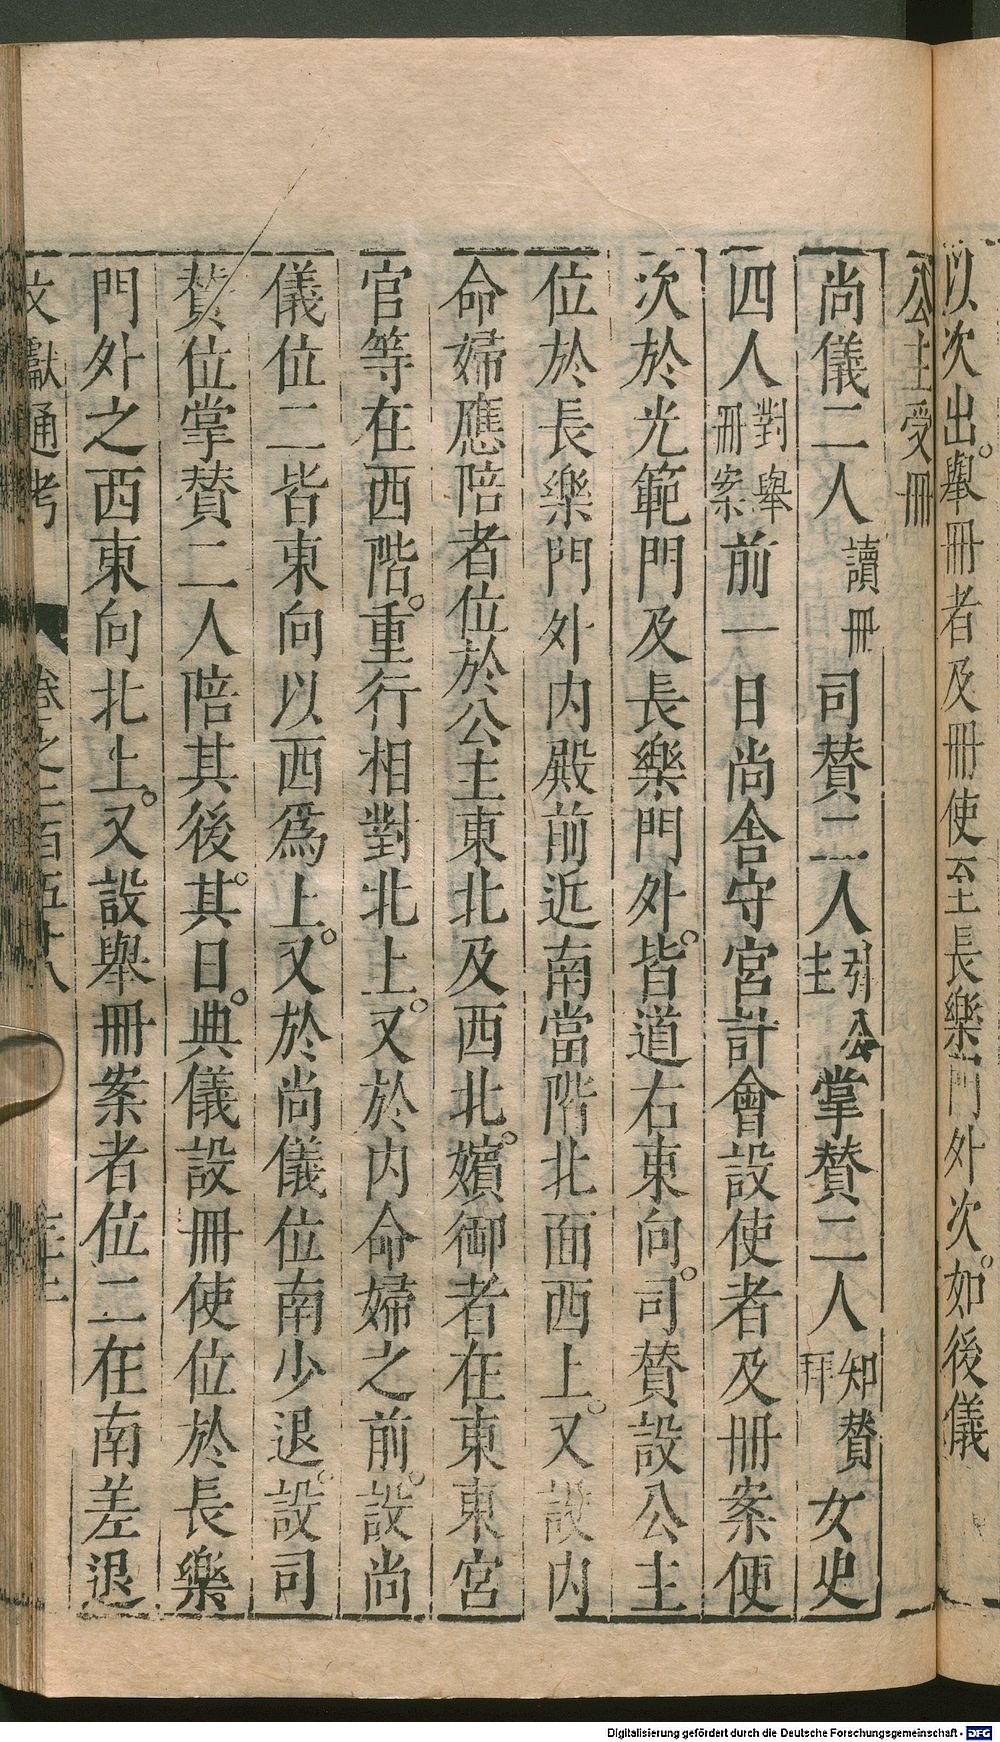 以次出。舉冊者及冊使至長樂門外次。如後儀
公主受冊
尚儀二人讀冊司贊二人引公主掌贊二人知贊拜女史
四人對舉冊案前一日尚舍守宮計會設使者及冊案便
次於光範門及長樂門外。皆道右東向。司贊設公主
位於長樂門外內殿前近南當階北面西上。又設內
命婦應陪者位於公主東北及西北。嬪御者在東東宮
官等在西階。重行相對北上。又於內命婦之前。設尚
儀位二皆東向以西爲上。又於尚儀位南少退。設司
贊位掌贊二人陪其後。其日。典儀設冊使位於長樂
門外之西東向北上。又設舉冊案者位二在南差退
文獻通考 卷之二百五十八
Digitalisierung gefördert durch die Deutsche Forschungsgemeinschaft - DFG